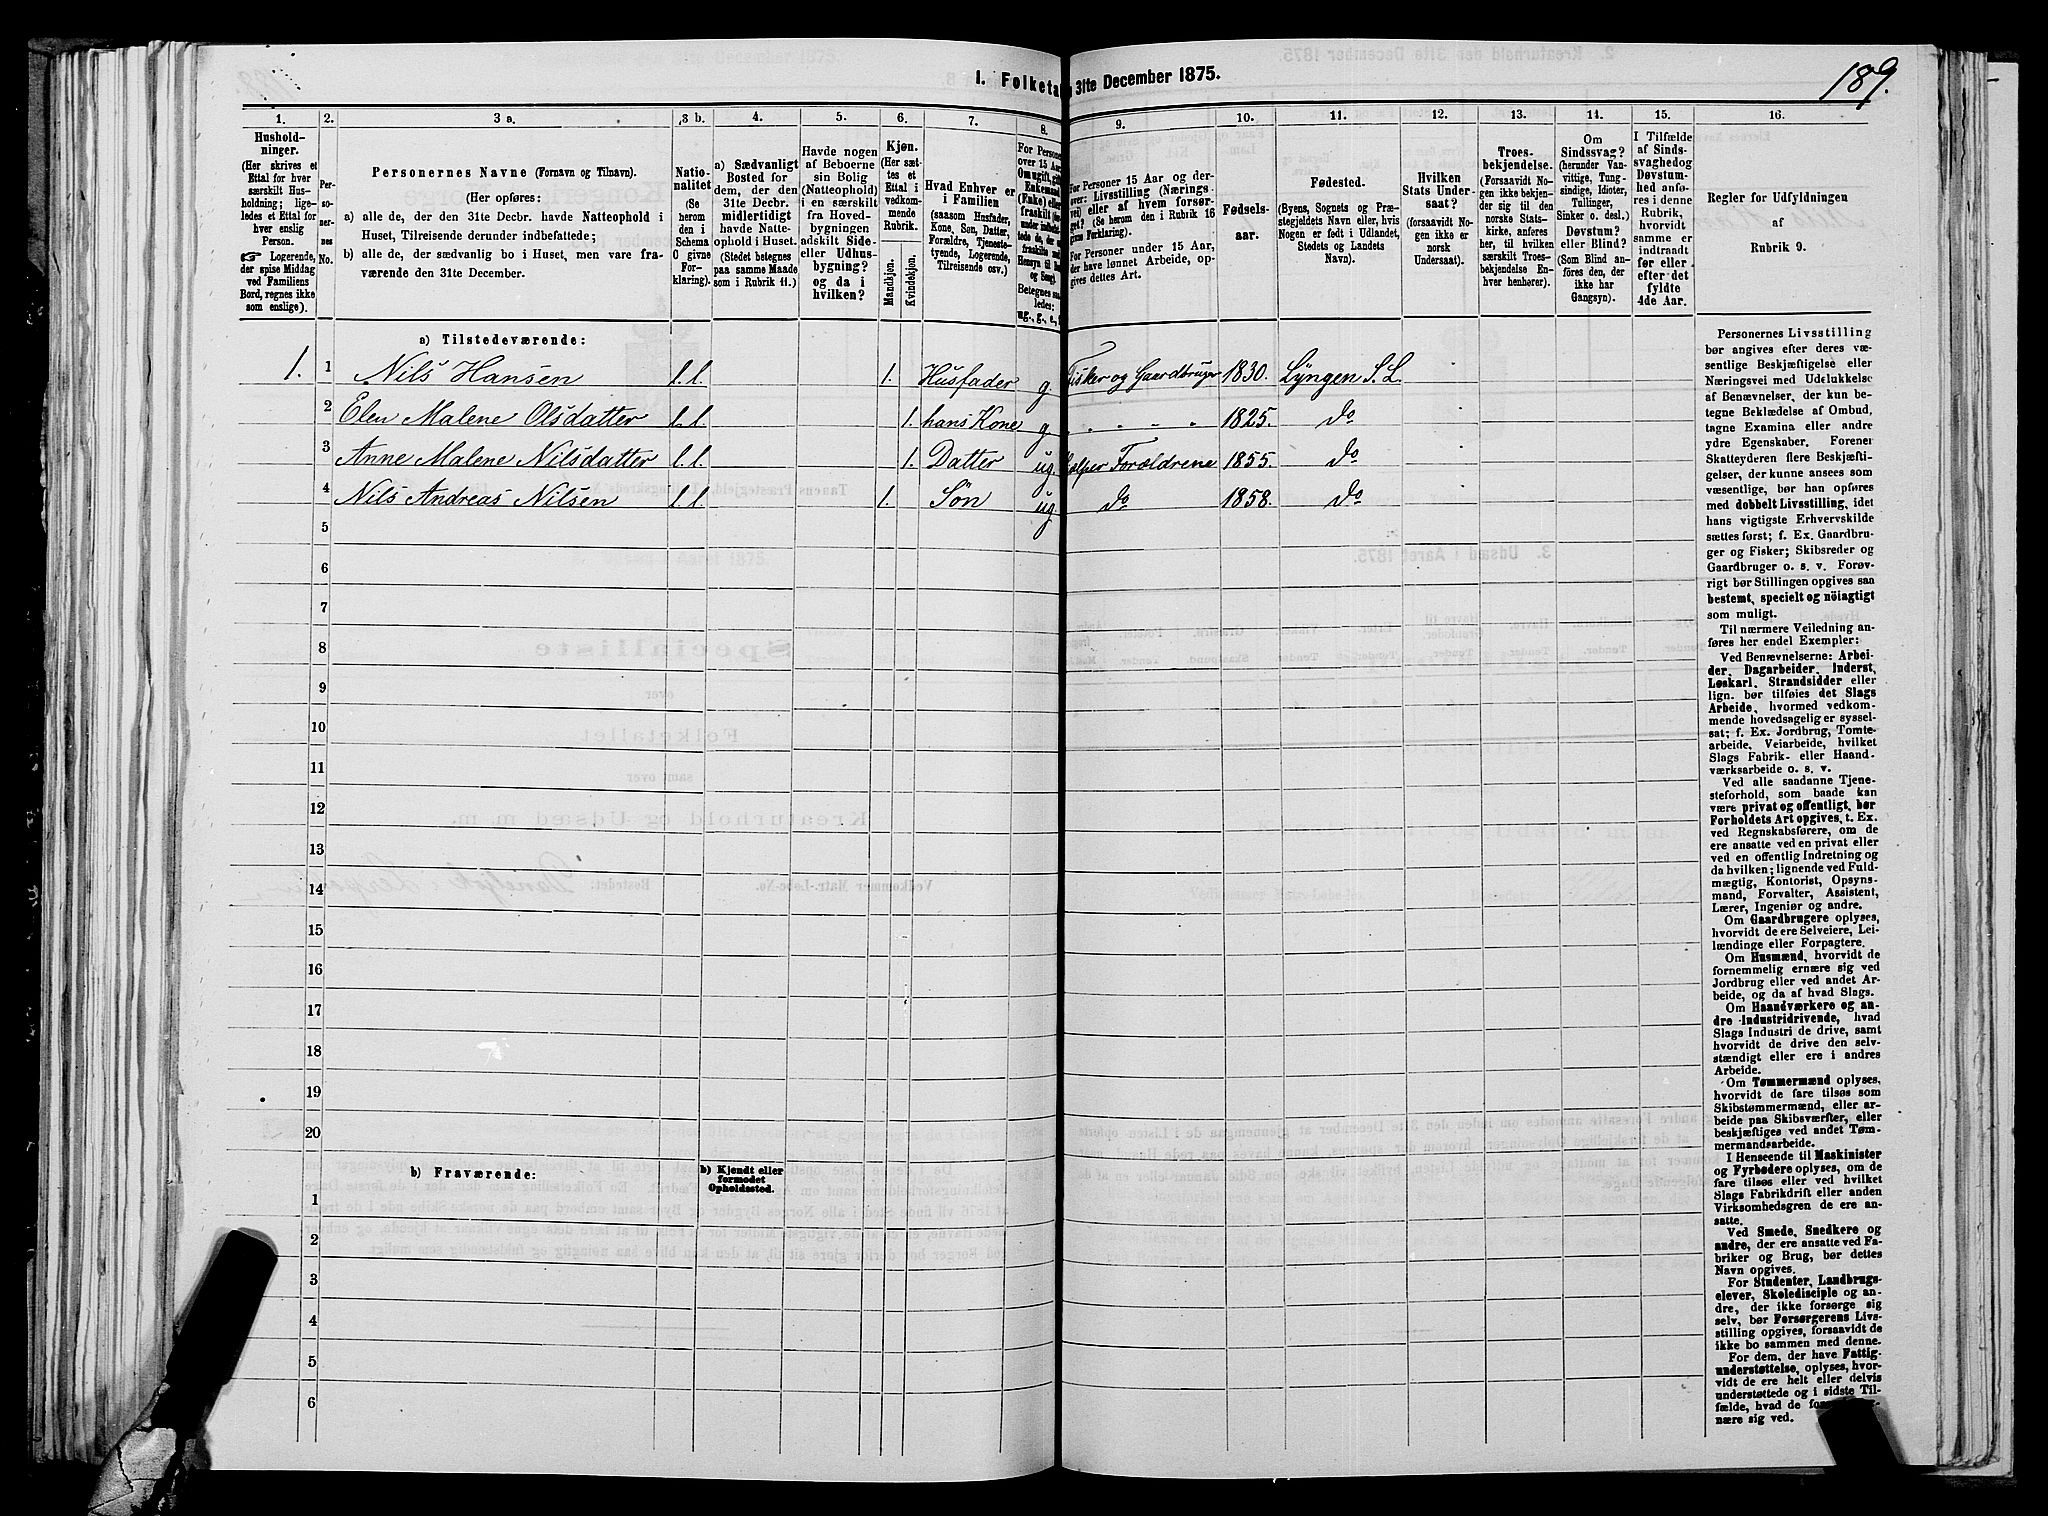 189.
I. Folketa 31te December 1875.
1. 2. 3 a. 3 b. 4. 5. 6. 7. 8. 9. 10. 11. 12. 13. 14. 15. 16.
Hushold-
ninger.
(Her skrives et
Ettal for hver
særskilt Hus-
holdning; lige-
ledes et Ettal for
hver enslig
Person.
☞ Logerende,
der spise Middag
ved Familiens
Bord, regnes ikke
som enslige).
Per-
so-
ner-
nes
No.
Personernes Navne (Fornavn og Tilnavn).
(Her opføres:
a) alle de, der den 31te Decbr. havde Natteophold i
Huset, Tilreisende derunder indbefattede;
b) alle de, der sædvanlig bo i Huset, men vare fra-
værende den 31te December.
Natio-
nalitet
(Se
herom
den i
Schema
O givne
For-
klaring).
a) Sædvanligt
Bosted for
dem, der den
31te Decbr.
midlertidigt
havde Natte-
ophold i Huset.
(Stedet betegnes
paa samme Maade
som i Rubrik 11.)
Havde nogen
af Beboerne
sin Bolig
(Natteophold)
i en særskilt
fra Hoved-
bygningen
adskilt Side-
eller Udhus-
bygning?
og da i
hvilken?
Kjøn.
(Her sæt-
tes et
Ettal i
vedkom-
mende
Rubrik.
Mandkjøn.
Kvindekjøn.
Hvad Enhver er
i Familien
(saasom Husfader,
Kone, Søn, Datter,
Forældre, Tjeneste-
tyende, Logerende,
Tilreisende osv.)
For Persone
over 15 Aar
Om ugift, gift
Enkemand
(Enke) eller
fraskilt
Betegnes saa
ledes:
ug., g., e.,
For Personer 15 Aar og der-
over: Livsstilling (Nærings-
vei) eller af hvem forsør-
get? (Se herom den i Rubrik 16
givne Forklaring).
For Personer under 15 Aar,
der have lønnet Arbeide, op-
gives dettes Art.
Fødsels-
aar.
Fødested.
(Byens, Sognets og Præ-
stegjeldets Navn eller, hvis
Nogen er født i Udlandet,
Stedets og Landets
Navn).
Hvilken
Stats Under-
saat?
(forsaavidt No-
gen ikke er
norsk
Undersaat).
Troes-
bekjendelse.
(Forsaavidt No-
gen ikke bekjen-
der sig til den
norske Stats-
kirke, anføres
her, til hvilken
særskilt Troes-
bekjendelse En-
hver henhører).
Om
Sindssvag?
(herunder Van-
vittige, Tung-
sindige, Idioter,
Tullinger,
Sinker o. desl.)
Døvstum?
eller Blind?
(Som Blind an-
føres den, der
ikke har
Gangsyn).
I Tilfælde
af Sinds-
svaghed og
Døvstum-
hed anfø-
res i denne
Rubrik,
hvorvidt
samme er
indtraadt
før eller
efter det
fyldte
4de Aar.
Regler for Udfyldningen
af
Rubrik 9.
a) Tilstedeværende:
1. 1 Nils Hansen l.l. 1. Husfader g. Fisker og Gaardbruger 1830. Lyngen S.L.
2 Elen Malene Olsdatter l.l. 1. hans Kone g. " " " " 1825. do
3 Anne Malene Nilsdatter l.l. 1. Datter ug. hjælper Forældrene 1855. do
4 Nils Andreas Nilsen l.l. 1. Søn ug. do 1858. do
5
6
7
8
9
10
11
12
13
14
15
16
17
18
19
20
b) Fraværende:
b) Kjendt eller
formodet
Opholdssted.
1
2
3
4
5
6
Personernes Livsstilling
bør angives efter deres væ-
sentlige Beskjæftigelse eller
Næringsvei med Udelukkelse
af Benævnelser, der kun be-
tegne Beklædelse af Ombud,
tagne Examina eller andre
ydre Egenskaber. Forener
Skatteyderen flere Beskjæfti-
gelser, der kunne ansees som
væsentlige, bør han opføres
med dobbelt Livsstilling, idet
hans vigtigste Erhvervskilde
sættes først; f. Ex. Gaardbru-
ger og Fisker; Skibsreder og
Gaardbruger o. s. v. Forøv-
rigt bør Stillingen opgives saa
bestemt, specielt og nöiagtigt
som muligt.
Til nærmere Veiledning an-
føres her endel Exempler:
Ved Benævnelserne: Arbei-
der, Dagarbeider, Inderst,
Løskarl, Strandsidder eller
lign. bør tilføies det Slags
Arbeide, hvormed vedkom-
mende hovedsagelig er syssel-
sat; f. Ex. Jordbrug, Tomte-
arbeide, Veiarbeide, hvilket
Slags Fabrik- eller Haand-
værksarbeide o. s. v.
Ved alle saadanne Tjene-
steforhold, som baade kan
være privat og offentligt, bør
Forholdets Art opgives, t. Ex.
ved Regnskabsførere, om de
ere ansatte ved en privat eller
ved en offentlig Indretning og
da hvilken; lignende ved Fuld-
mægtig, Kontorist, Opsyns-
mand, Forvalter, Assistent,
Lærer, Ingeniør og andre.
Om Gaardbrugere oplyses,
hvorvidt de ere Selveiere, Lei-
lændinge eller Forpagtere.
Om Husmænd, hvorvidt de
fornemmelig ernære sig ved
Jordbrug eller ved andet Ar-
beide, og da af hvad Slags.
Om Haandværkere og an-
dre Industridrivende, hvad
Slags Industri de drive, samt
hvorvidt de drive den selv-
stændigt eller ere i andres
Arbeide.
Om Tømmermænd oplyses,
hvorvidt de fare tilsøs som
Skibstømmermænd, eller ar-
beide paa Skibsværfter, eller
beskjæftiges ved andet Tøm-
mermandsarbeide.
I Henseende til Maskinister
og Fyrbødere oplyses, om de
fare tilsøs eller ved hvilket
Slags Fabrikdrift eller anden
Virksomhedsgren de ere an-
satte.
Ved Smede, Snedkere og
andre, der ere ansatte ved Fa-
briker og Brug, bør dettes
Navn opgives.
For Studenter, Landbrugs-
elever, Skoledisciple og an-
dre, der ikke forsørge sig
selv, bør Forsørgerens Livs-
stilling opgives, forsaavidt de
ikke bo sammen med denne.
For dem, der have Fattig-
understøttelse, oplyses, hvor-
vidt de ere helt eller delvis
understøttede og i sidste Til-
fælde, hvad de
nære sig ved.